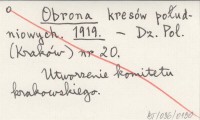 a
Obrona kresów połud-
niowych. 1919. – Dz. Pol.
(Kraków) nr 20.
Utworzenie komitetu
krakowskiego.